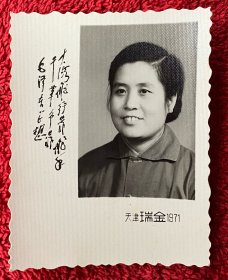 大海航行靠舵手
干革命靠
毛泽东思想
天津 瑞金 1971